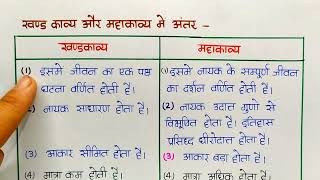 खण्ड काव्य और महाकाव्य में अंतर -
खण्डकाव्य
महाकाव्य
(1) इसमे जीवन का एक पक्ष
घटना वर्णित होती है।
(1) इसमे नायक के सम्पूर्ण जीवन
का दर्शन वर्णित होती है।
(2) नायक साधारण होता है।
(2) नायक उदात्त गुणो से
विभूषित होता है। इतिहास
प्रसिद्ध धीरोदात्त होता है।
(3) आकार सीमित होता है।
(3) आकार बड़ा होता है।
(4) मात्रा कम होती है।
(4) मात्रा अधिक होता है।